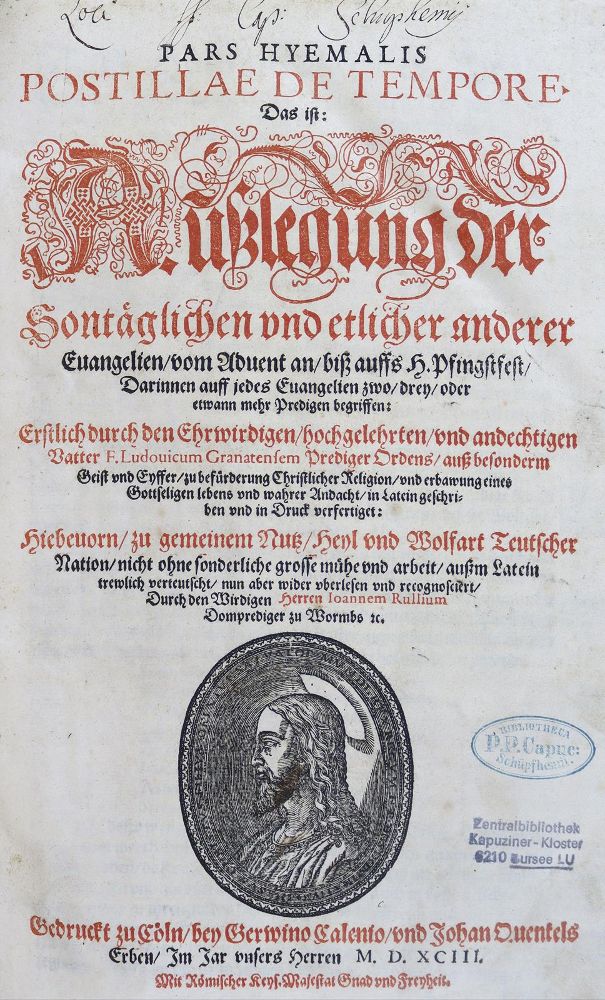 Loci ff Cap: Schuphemij
PARS HYEMALIS
POSTILLAE DE TEMPORE.
Das ist:
Außlegung der
Sontäglichen vnd etlicher anderer
Euangelien/vom Aduent an/biß auffs H.Pfingstfest/
Darinnen auff jedes Euangelien zwo/drey/oder
etwann mehr Predigen begriffen:
Erstlich durch den Ehrwirdigen/hochgelehrten/vnd andechtigen
Vatter F. Ludouicum Granatensem Prediger Ordens/auß besonderm
Geist vnd Eyffer/zu befürderung Christlicher Religion/vnd erbawung eines
Gottseligen lebens vnd wahrer Andacht/in Latein geschri-
ben vnd in Druck verfertiget:
Hiebeuorn/zu gemeinem Nutz/Heyl vnd Wolfart Teutscher
Nation/nicht ohne sonderliche grosse mühe vnd arbeit/außm Latein
trewlich verteutscht/nun aber wider vberlesen vnd recognosciert/
Durch den Wirdigen Herren Ioannem Rullium
Domprediger zu Wormbs ꝛc.
BIBLIOTHECA
P.P. Capuc:
Schüpfhemii.
Zentralbibliothek
Kapuziner-Kloster
6210 Sursee LU
Gedruckt zu Cöln/bey Gerwino Calenio/vnd Johan Quentels
Erben/Im Jar vnsers Herren M. D. XCIII.
Mit Römischer Keys. Majestat Gnad vnd Freyheit.